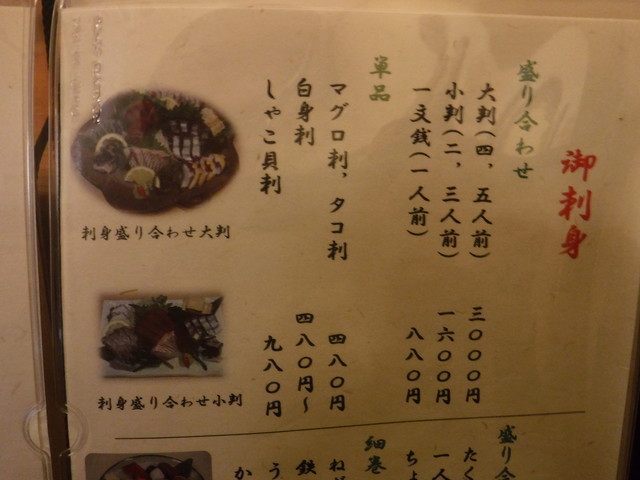 御刺身
盛り合わせ
大判(四、五人前) 三〇〇〇円
小判(二、三人前) 一六〇〇円
一文銭(一人前) 八八〇円
単品
マグロ刺、タコ刺 四八〇円
白身刺 四八〇円~
しゃこ貝刺 九八〇円
刺身盛り合わせ大判
刺身盛り合わせ小判
盛り合
たく
一人
ちょ
細巻
ねぎ
鉄
う
か